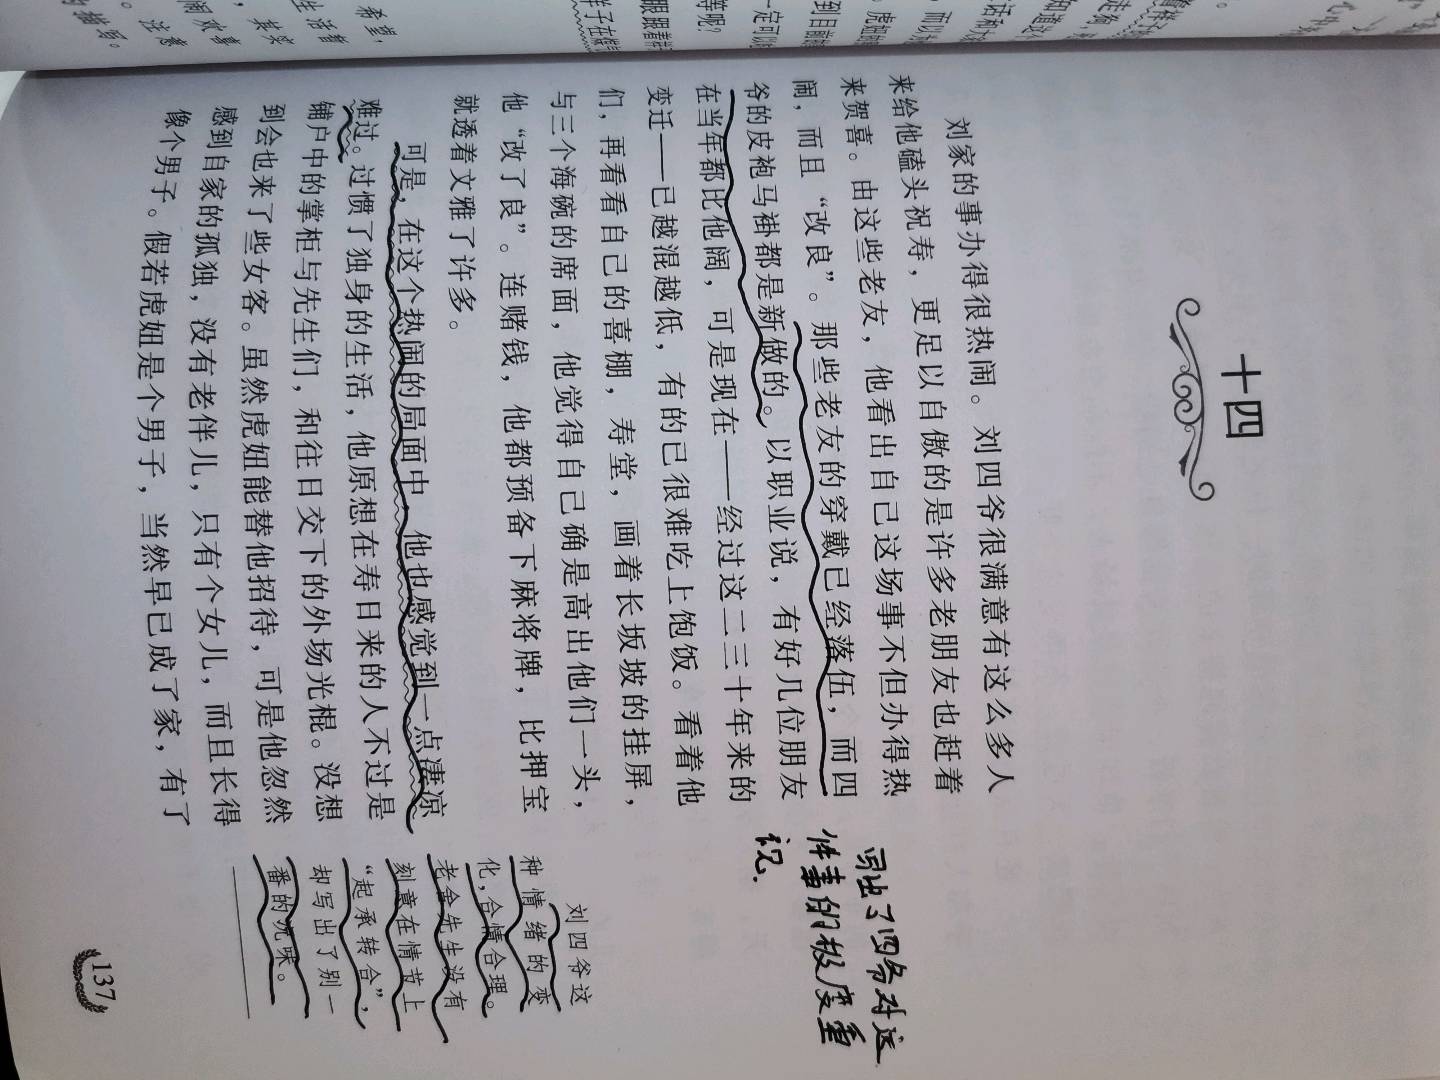 十四
刘家的事办得很热闹。刘四爷很满意有这么多人
来给他磕头祝寿，更足以自傲的是许多老朋友也赶着
来贺喜。由这些老友，他看出自己这场事不但办得热
闹，而且“改良”。那些老友的穿戴已经落伍，而四
爷的皮袍马褂都是新做的。以职业说，有好几位朋友
在当年都比他阔，可是现在——经过这二三十年来的
变迁——已越混越低，有的已很难吃上饱饭。看着他
们，再看看自己的喜棚，寿堂，画着长坂坡的挂屏，
与三个海碗的席面，他觉得自己确是高出他们一头，
他“改了良”。连赌钱，他都预备下麻将牌，比押宝
就透着文雅了许多。
可是，在这个热闹的局面中，他也感觉到一点凄凉
难过。过惯了独身的生活，他原想在寿日来的人不过是
铺户中的掌柜与先生们，和往日交下的外场光棍。没想
到会也来了些女客。虽然虎妞能替他招待，可是他忽然
感到自家的孤独，没有老伴儿，只有个女儿，而且长得
像个男子。假若虎妞是个男子，当然早已成了家，有了
写出了四爷对这
件事的极度重
视.
刘四爷这
种情绪的变
化，合情合理。
老舍先生没有
刻意在情节上
“起承转合”，
却写出了别一
番的况味。
137